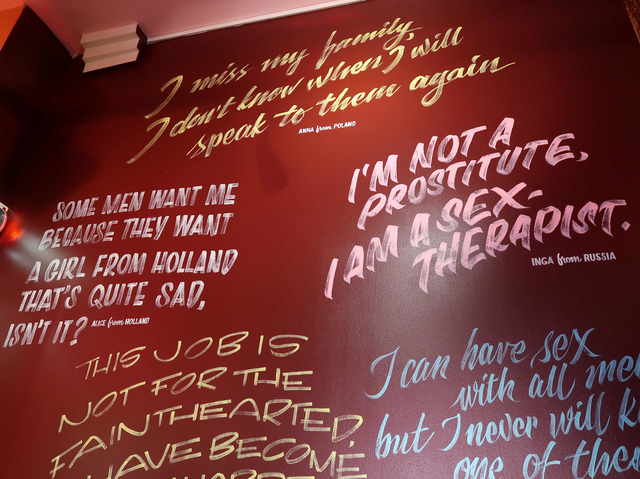 I miss my family,
I don't know when I will
speak to them again
ANNA from POLAND
I'M NOT A
PROSTITUTE,
I AM A SEX-
THERAPIST.
INGA from RUSSIA
SOME MEN WANT ME
BECAUSE THEY WANT
A GIRL FROM HOLLAND
THAT'S QUITE SAD,
ISN'T IT?
ALICE from HOLLAND
THIS JOB IS
NOT FOR THE
FAINTHEARTED,
HAVE BECOME
I can have sex
with all me
but I never will k
one of the